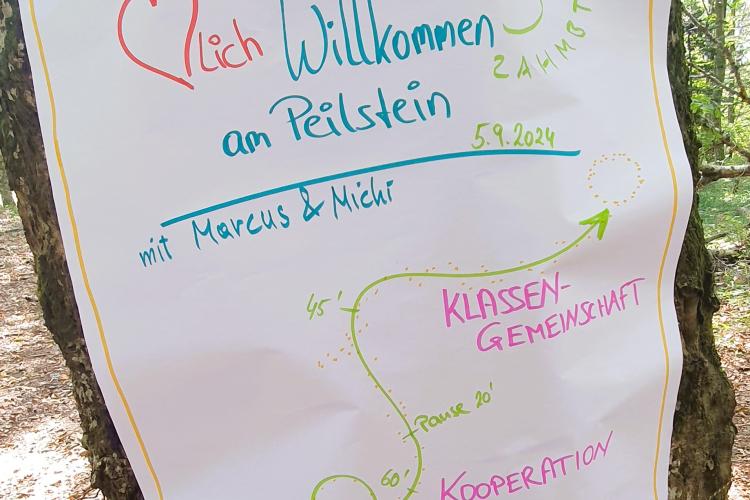 ♡lich Willkommen
ZAHMBT
am Peilstein
5.9.2024
mit Marcus & Michi
45'
KLASSEN-
GEMEINSCHAFT
Pause 20'
60'
KOOPERATION